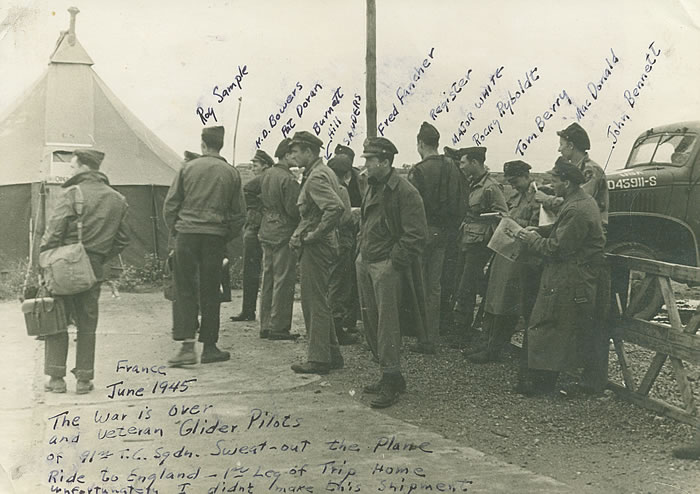 Roy Sample
M.D. Bowers
Pat Doran
Burnett
Hill
SANDERS
Fred Fancher
Register
MAJOR WHITE
Rocky Ryboldt
Tom Berry
MacDonald
John Bennett
D45911-S
France
June 1945
The War is over
and veteran Glider Pilots
of 91st T.C. Sqdn. Sweat-out the Plane
Ride to England - 1st Leg of Trip Home
Unfortunately I didnt make this shipment